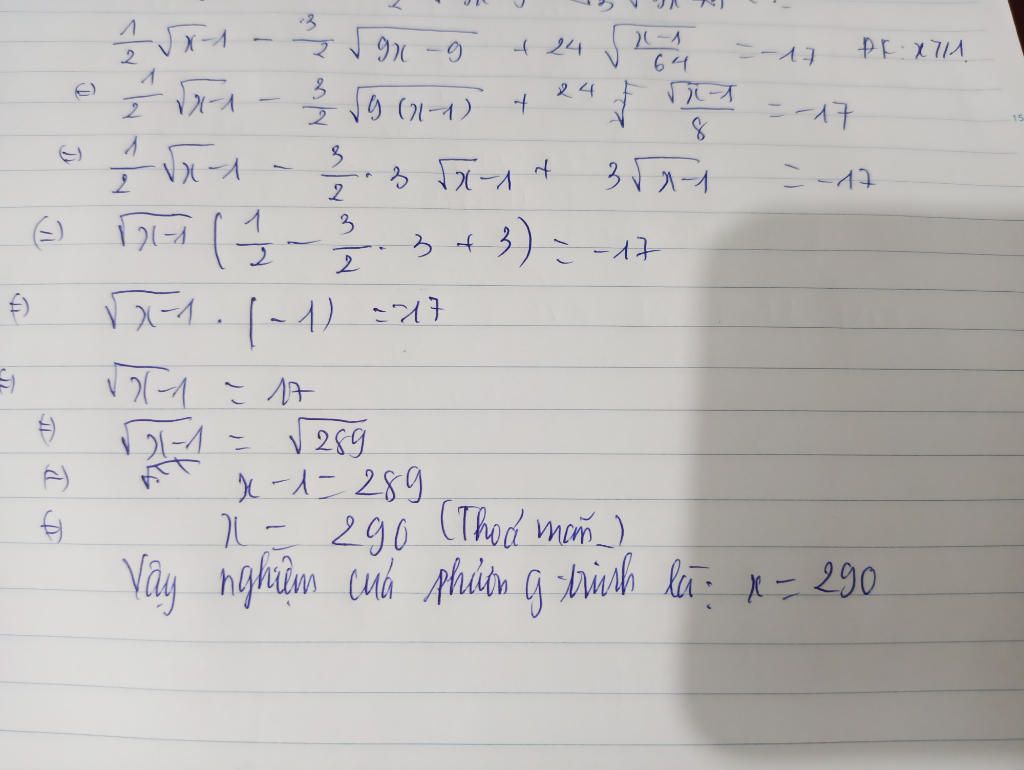 1/2 √x-1 - 3/2 √9x-9 + 24 √x-1/64 = -17 ĐK: x⩾1.
(=) 1/2 √x-1 - 3/2 √9(x-1) + 24 √x-1/8 = -17
(=) 1/2 √x-1 - 3/2 . 3 √x-1 + 3√x-1 = -17
(=) √x-1 (1/2 - 3/2 . 3 + 3) = -17
(=) √x-1 . (-1) = -17
(=) √x-1 = 17
(=) √x-1 = √289
(=) x-1 = 289
(=) x = 290 (Thoả mãn)
Vậy nghiệm của phương trình là: x = 290